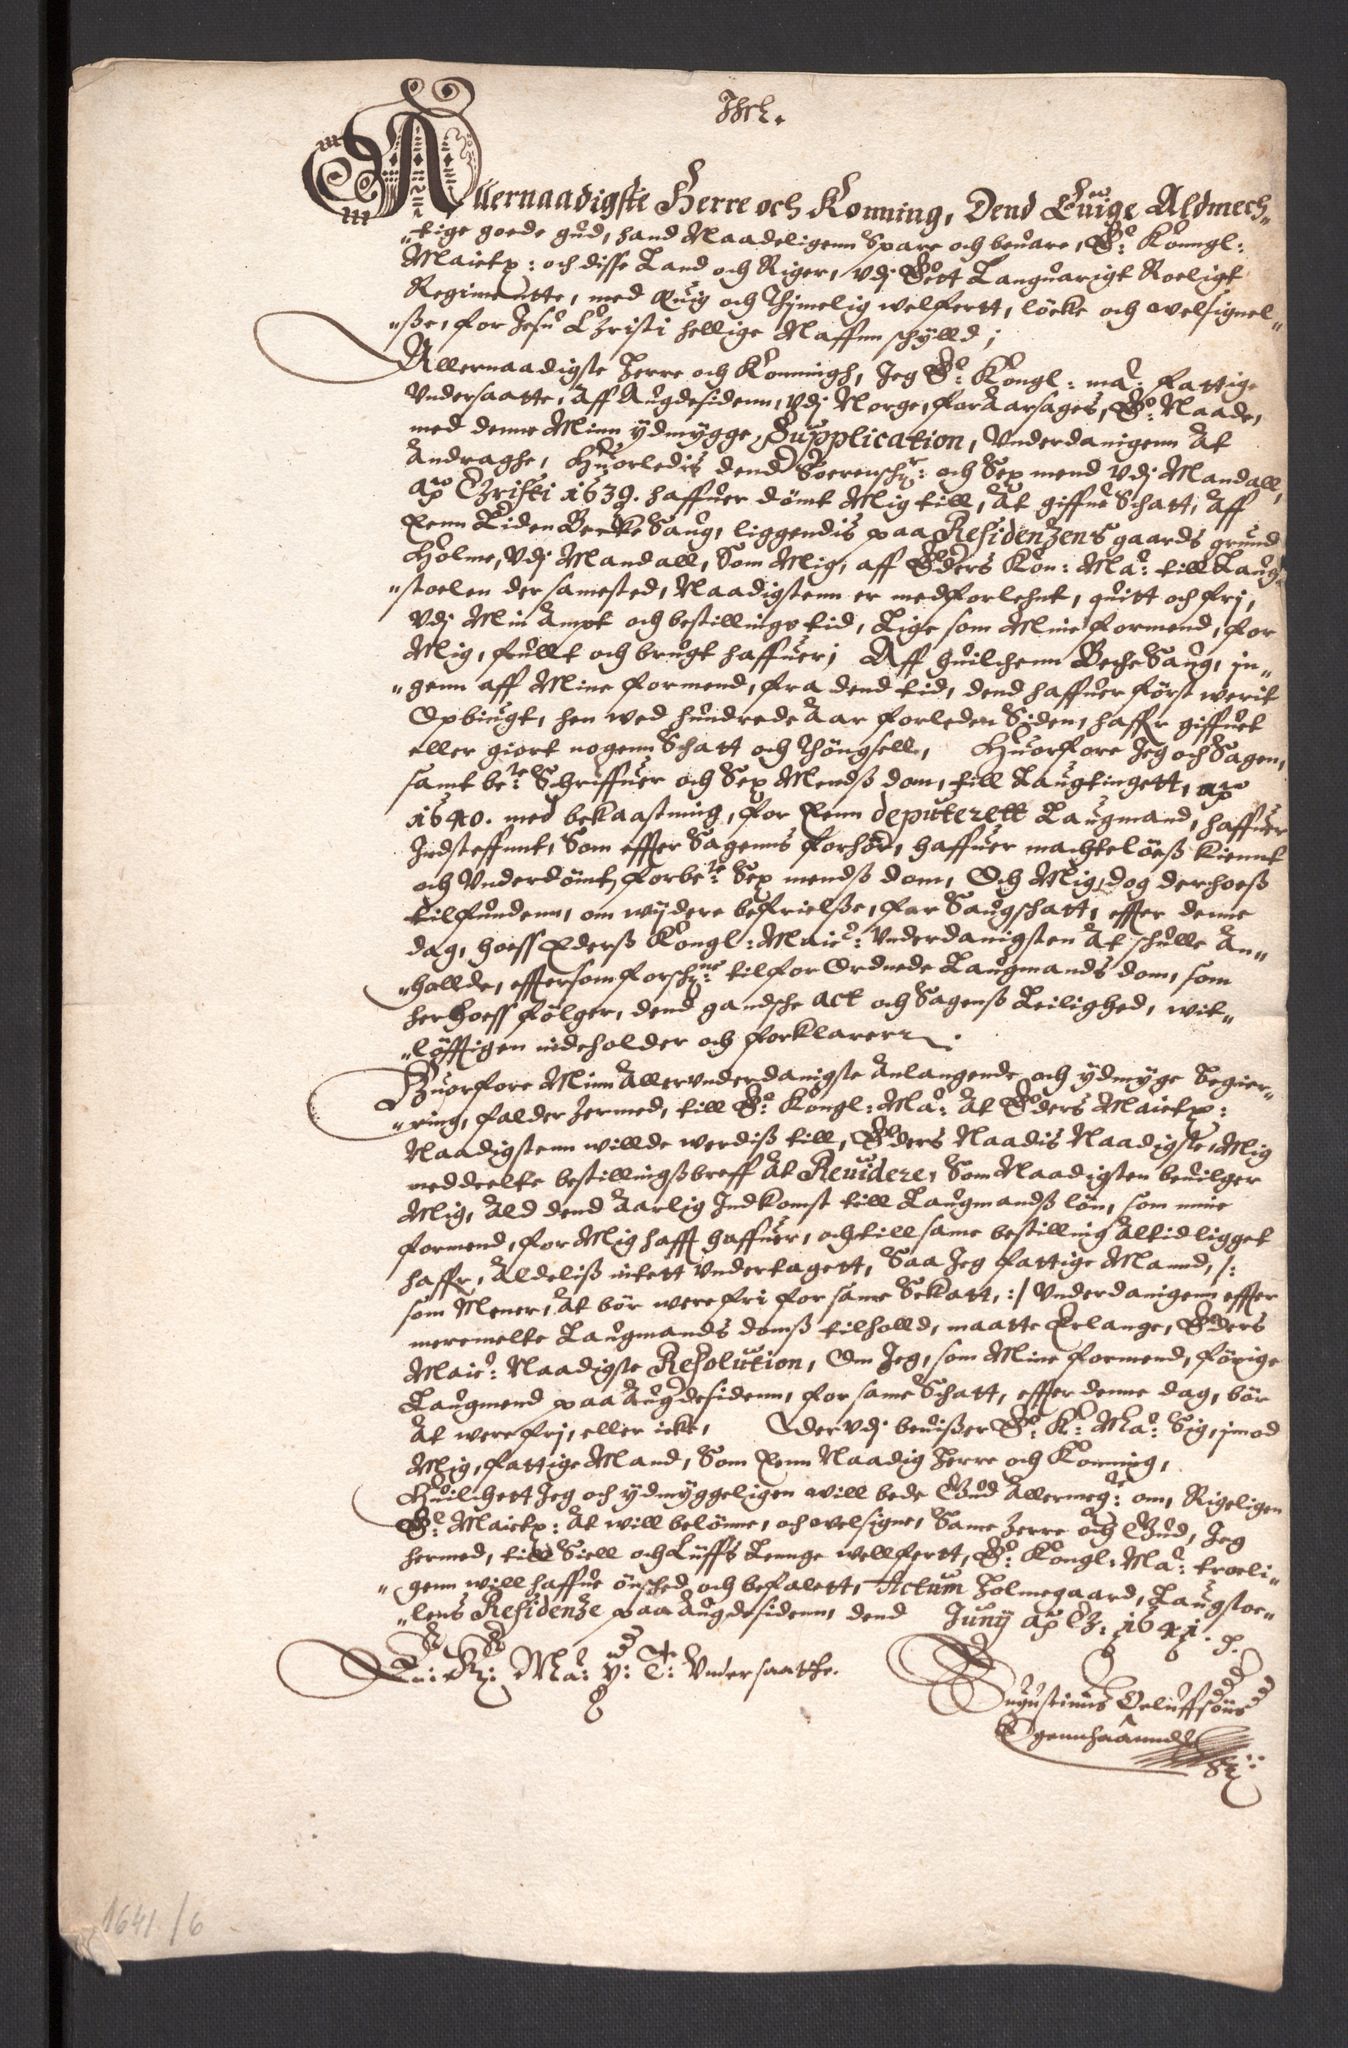 Jhs.
Allernaadigste Herre och Konning, Dend Euige Aldmech-
tige goede gud, hand Naadeligenn Spare och beuare, E: Kongl:
Maietz: och disse Land och Riger, vdj Gott Languarigt Roeligt
Regimentte, med Euig och Thimelig welfertt, löcke och welsignel-
ße, for Jesu Christi hellige Naffnn schylld;
Allernaadigste Herre och Konningh, Jeg E: Kongl: Ma: fattige
Vndersaatte, Aff Augdesidenn, vdj Norge, for Aarsages, E: Naade,
med denne Minn ydmygge Supplication, Vnderdanigenn At
Andraghe, Huorledis dend Soerenschr: och Sex mend vdj Mandall,
Ao Christi 1639. haffuer dömt Mig till, At giffue Schatt, Aff
Eenn Liden Becke Saug, liggendis paa Residenzens gaards grund
Holme, Vdj Mandall, Som Mig, aff Eders Kon: Ma: till Laug-
stoelen der samested, Naadigstenn er medforlehnt, quitt och frj,
Vdj Min Ampt och bestillings tid, Lige som Mine formend, for
Mig, fullt och brugt haffuer; Aff huilchenn Becke Saug, in-
genn aff Mine formend, fra dend tid, dend haffuer först werit
Opbiugt, hen wed hundrede Aar forleden Siden, haffr giffuet
eller giort nogenn Schatt och Thöngsell, Huorfore Jeg och Sagen,
samt bete: Schriffuer och Sex Mendß dom, till Laugtingett, Ao
1640. med bekaastning, for Eenn deputerett Laugmand, haffuer
Indsteffnnt, Som effter Sagenns forhör, haffuer machtelöeß kiennt
och Vnderdömt, forbete: Sex mendß dom, Och Mig, dog derhoeß
tilfundenn, om wydere befrielße, for Saugschatt, effter denne
dag, hoeß Ederß Kongl: Maie: Vnderdanigsten At schulle An-
hollde, effttersom forschne: tilfor Ordnede Laugmands dom, som
her hoess fölger, dend gandsche Act och Sagenß Leilighed, wit-
löfftigen indeholder och forklarer.
Huorfore Minn Allervnderdanigste Anlangende och ydmyge Begier-
ring, falder hermed, till E: Kongl: Ma: At Eders Maietz:
Naadigstenn willde werdiß till, Eders Naadis Naadigste, Mig
meddeelte bestillingßbreff At Reuidere, Som Naadigsten beuilger
Mig, Ald dend Aarlig Indkomst till Laugmandß lön, som mine
formend, for Mig hafft haffuer, och till same bestilling Altid ligget
haffr, Aldeliß intett Vndertagett, Saa Jeg fattige Mannd, /:
som Mener, At bör were fri for same Schatt, :/ Vnderdanigenn effter
meremelte Laugmands domß tilholld, maatte Erlange, Eders
Maie: Naadigste Resolution, Om Jeg, som Mine formend, förige
Laugmend paa Augdesidenn, for same Schatt, effter denne dag, bör
At were frj, eller icke, Der vdj beuißer E: K: Ma: Sig, imod
Mig, fattige Mand, Som Eenn Naadig Herre och Konning,
Huilchett Jeg och ydmyggeligen will bede Gud Allermeg: om, Rigeligen
E: Maietz: At will belönne, och welsigne, Same Herre och Gud, Jeg
hermed, till Siell och Liiffs Lennge wellfertt, E: Kongl: Ma: troeli-
genn will haffue önsched och befalett, Actum Holmegaard, Laugstoe-
lens Residenze paa Augdesidenn, dend Juny Ao Ch: 1641.
E: K: Ma: V: T: Vndersaatthe.
Augustinus Oeluffsönn
Egennhaanndt
1641 / 6